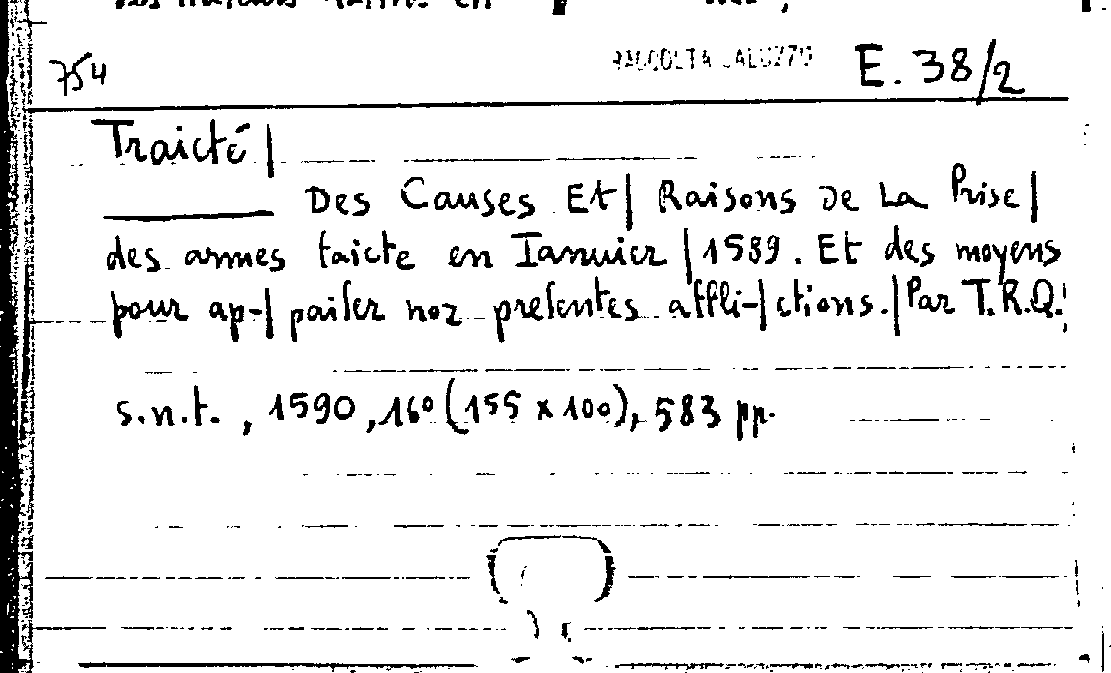 754 RACCOLTA SALUZZO E. 38/2
Traicté |
Des Causes Et | Raisons De La Prise |
des armes faicte en Ianuier | 1589. Et des moyens
pour ap-| paiser noz presentes affli-| ctions. | Par T.R.Q.
s.n.t., 1590, 16º (155 x 100), 583 pp.